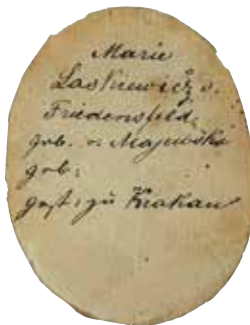 Marie
Laskiewicz v.
Friedensfeld,
geb. v. Majewski
geb:
gest: zu Krakau